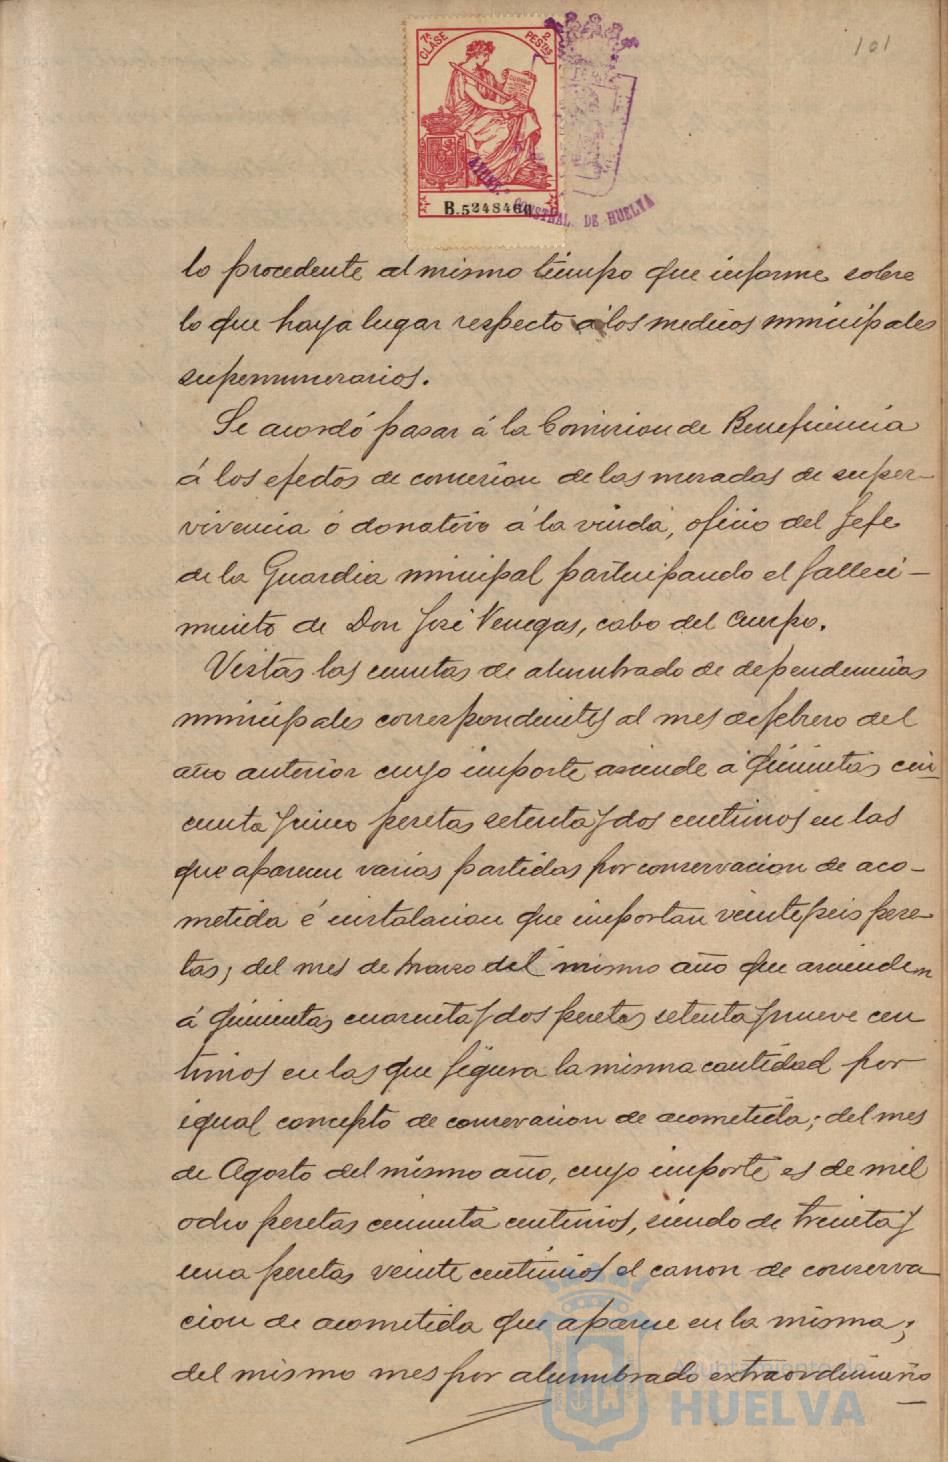 101
7ª CLASE
2 PESTAS
B.5248460
AYUNT.º CONSTNAL. DE HUELVA
lo procedente al mismo tiempo que informe sobre
lo que haya lugar respecto á los medicos municipales
supernumerarios.
Se acordó pasar á la Comision de Beneficencia
á los efectos de concesion de las mesadas de super-
vivencia ó donativo á la viuda, oficio del Jefe
de la Guardia municipal participando el falleci-
miento de Don José Venegas, cabo del Cuerpo.
Vistas las cuentas de alumbrado de dependencias
municipales correspondientes al mes de febrero del
año anterior cuyo importe asciende á quinientas cin
cuenta y cinco pesetas setenta y dos centimos en las
que aparecen varias partidas por conservacion de aco-
metida é instalacion que importan veinte y seis pese-
tas; del mes de Marzo del mismo año que ascienden
á quinientas cuarenta y dos pesetas setenta y nueve cen
timos en las que figura la misma cantidad por
igual concepto de conservacion de acometida; del mes
de Agosto del mismo año, cuyo importe es de mil
ocho pesetas cincuenta centimos, siendo de treinta y
una pesetas veinte centimos el canon de conserva
cion de acometida que aparece en la misma;
del mismo mes por alumbrado extraordinario
Ayuntamiento de
HUELVA